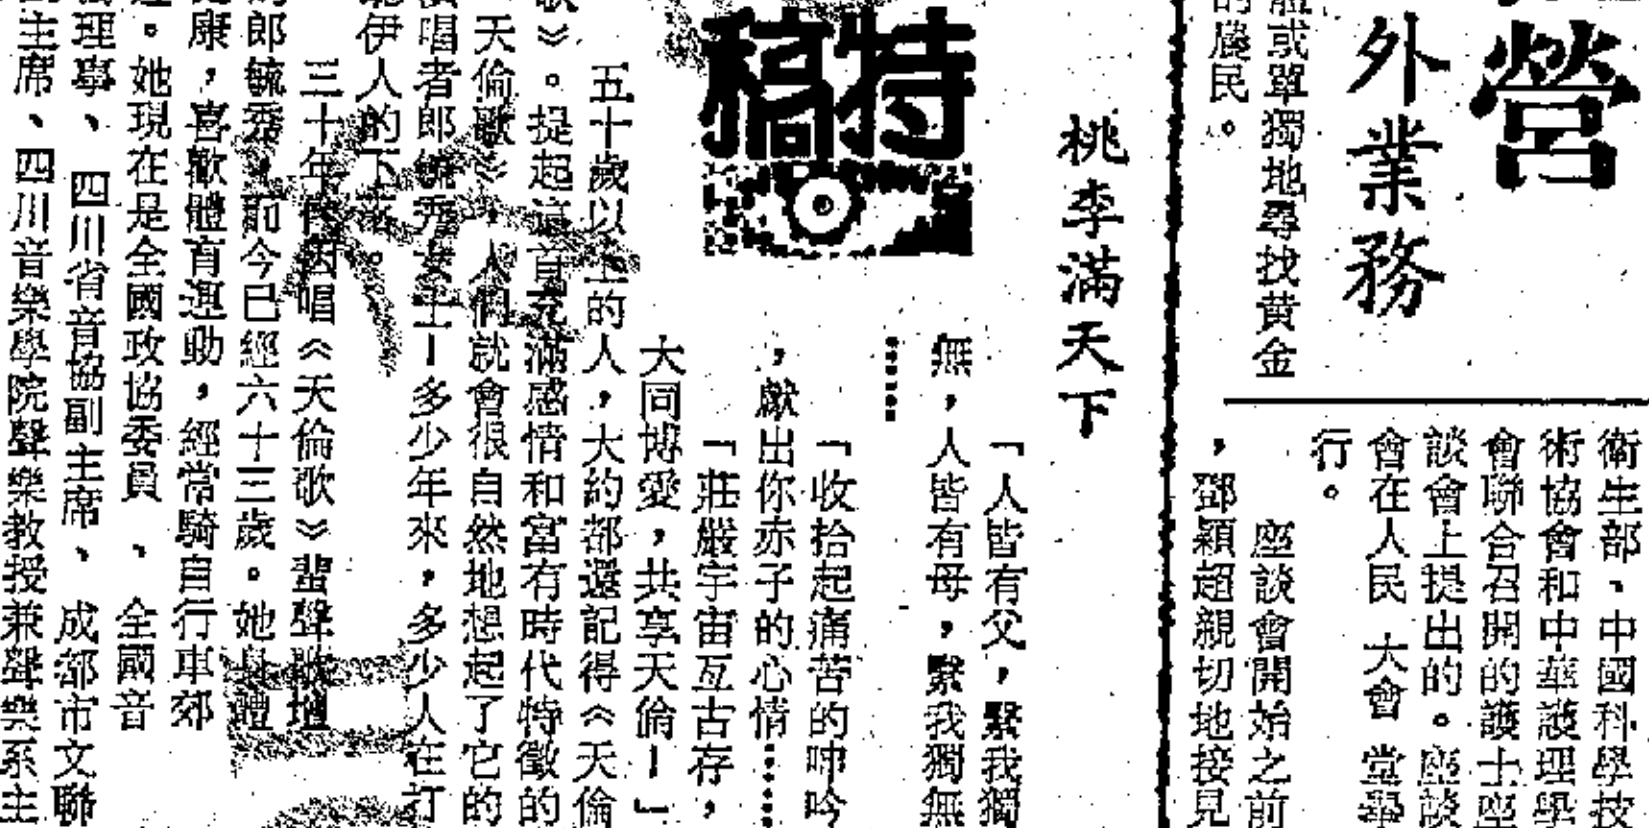 營
外業務
體或單獨地尋找黃金
的農民。
衛生部、中國科學技
術協會和中華護理學
會聯合召開的護士座
談會上提出的。座談
會在人民大會堂舉
行。
座談會開始之前
，鄧穎超親切地接見
桃李滿天下
特稿
「人皆有父，繄我獨
無，人皆有母，繄我獨無
……
「收拾起痛苦的呻吟
，獻出你赤子的心情……
「莊嚴宇宙亙古存，
大同博愛，共享天倫！」
五十歲以上的人，大約都還記得《天倫
歌》。提起這首充滿感情和富有時代特徵的
《天倫歌》，人們就會很自然地想起了它的
演唱者郎毓秀女士！多少年來，多少人在打
聽伊人的下落。
三十年代因唱《天倫歌》蜚聲歌壇
的郎毓秀，前今已經六十三歲。她身體
健康，喜歡體育運動，經常騎自行車郊
遊。她現在是全國政協委員、全國音
協理事、四川省音協副主席、成都市文聯
副主席、四川音樂學院聲樂教授兼聲樂系主